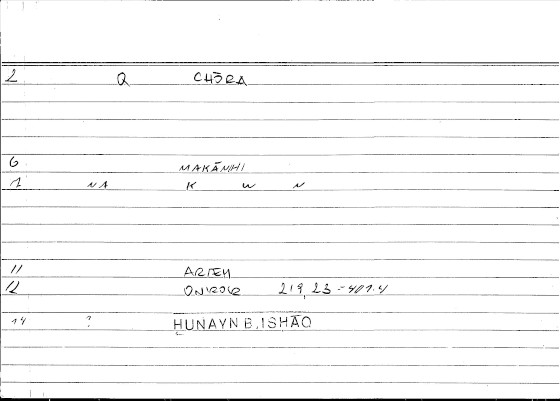 2 Q CHŌRA
6 MAKĀNIHI
7 NA K W N
11 ARTEM
12 ONIROCR 219,23 = 401.4
14 ? HUNAYN B. ISHĀQ